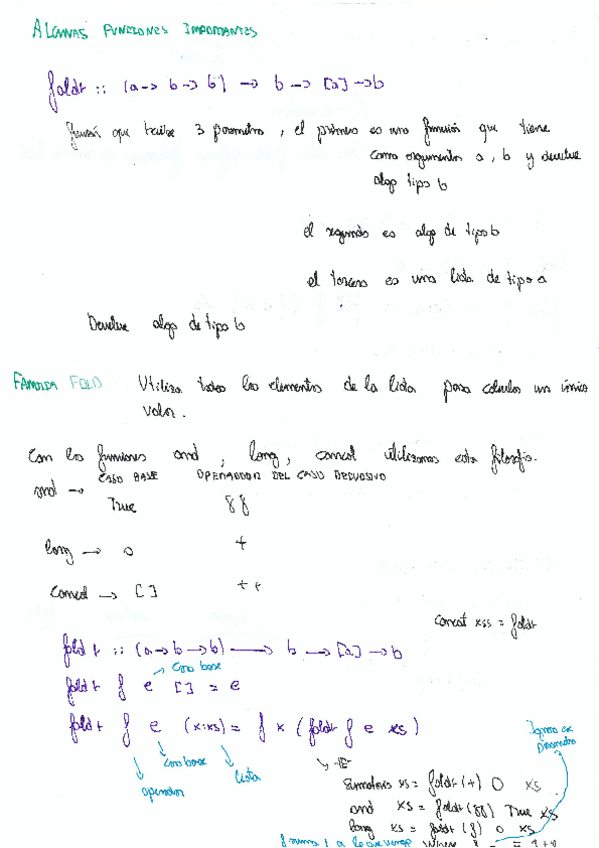 ALGUNAS FUNCIONES IMPORTANTES
foldr :: (a -> b -> b) -> b -> [a] -> b
función que recibe 3 parametros, el primero es una función que tiene
como argumentos a, b y devuelve
algo tipo b
el segundo es algo de tipo b
el tercero es una lista de tipo a
Devuelve algo de tipo b
FAMILIA FOLD Utiliza todos los elementos de la lista para calcular un único
valor.
Con las funciones and, long, concat utilizamos esta filosofía.
CASO BASE OPERADOR DEL CASO RECURSIVO
and -> True &&
long -> 0 +
concat -> [] ++
concat xss = foldr
foldr :: (a -> b -> b) -> b -> [a] -> b
caso base
foldr f e [] = e
foldr f e (x:xs) = f x (foldr f e xs)
caso base
operador
lista
Ignora
Parametro
sumatorio xs = foldr (+) 0 xs
and xs = foldr (&&) True xs
long xs = foldr (f) 0 xs
f suma 1 a lo que venga where f